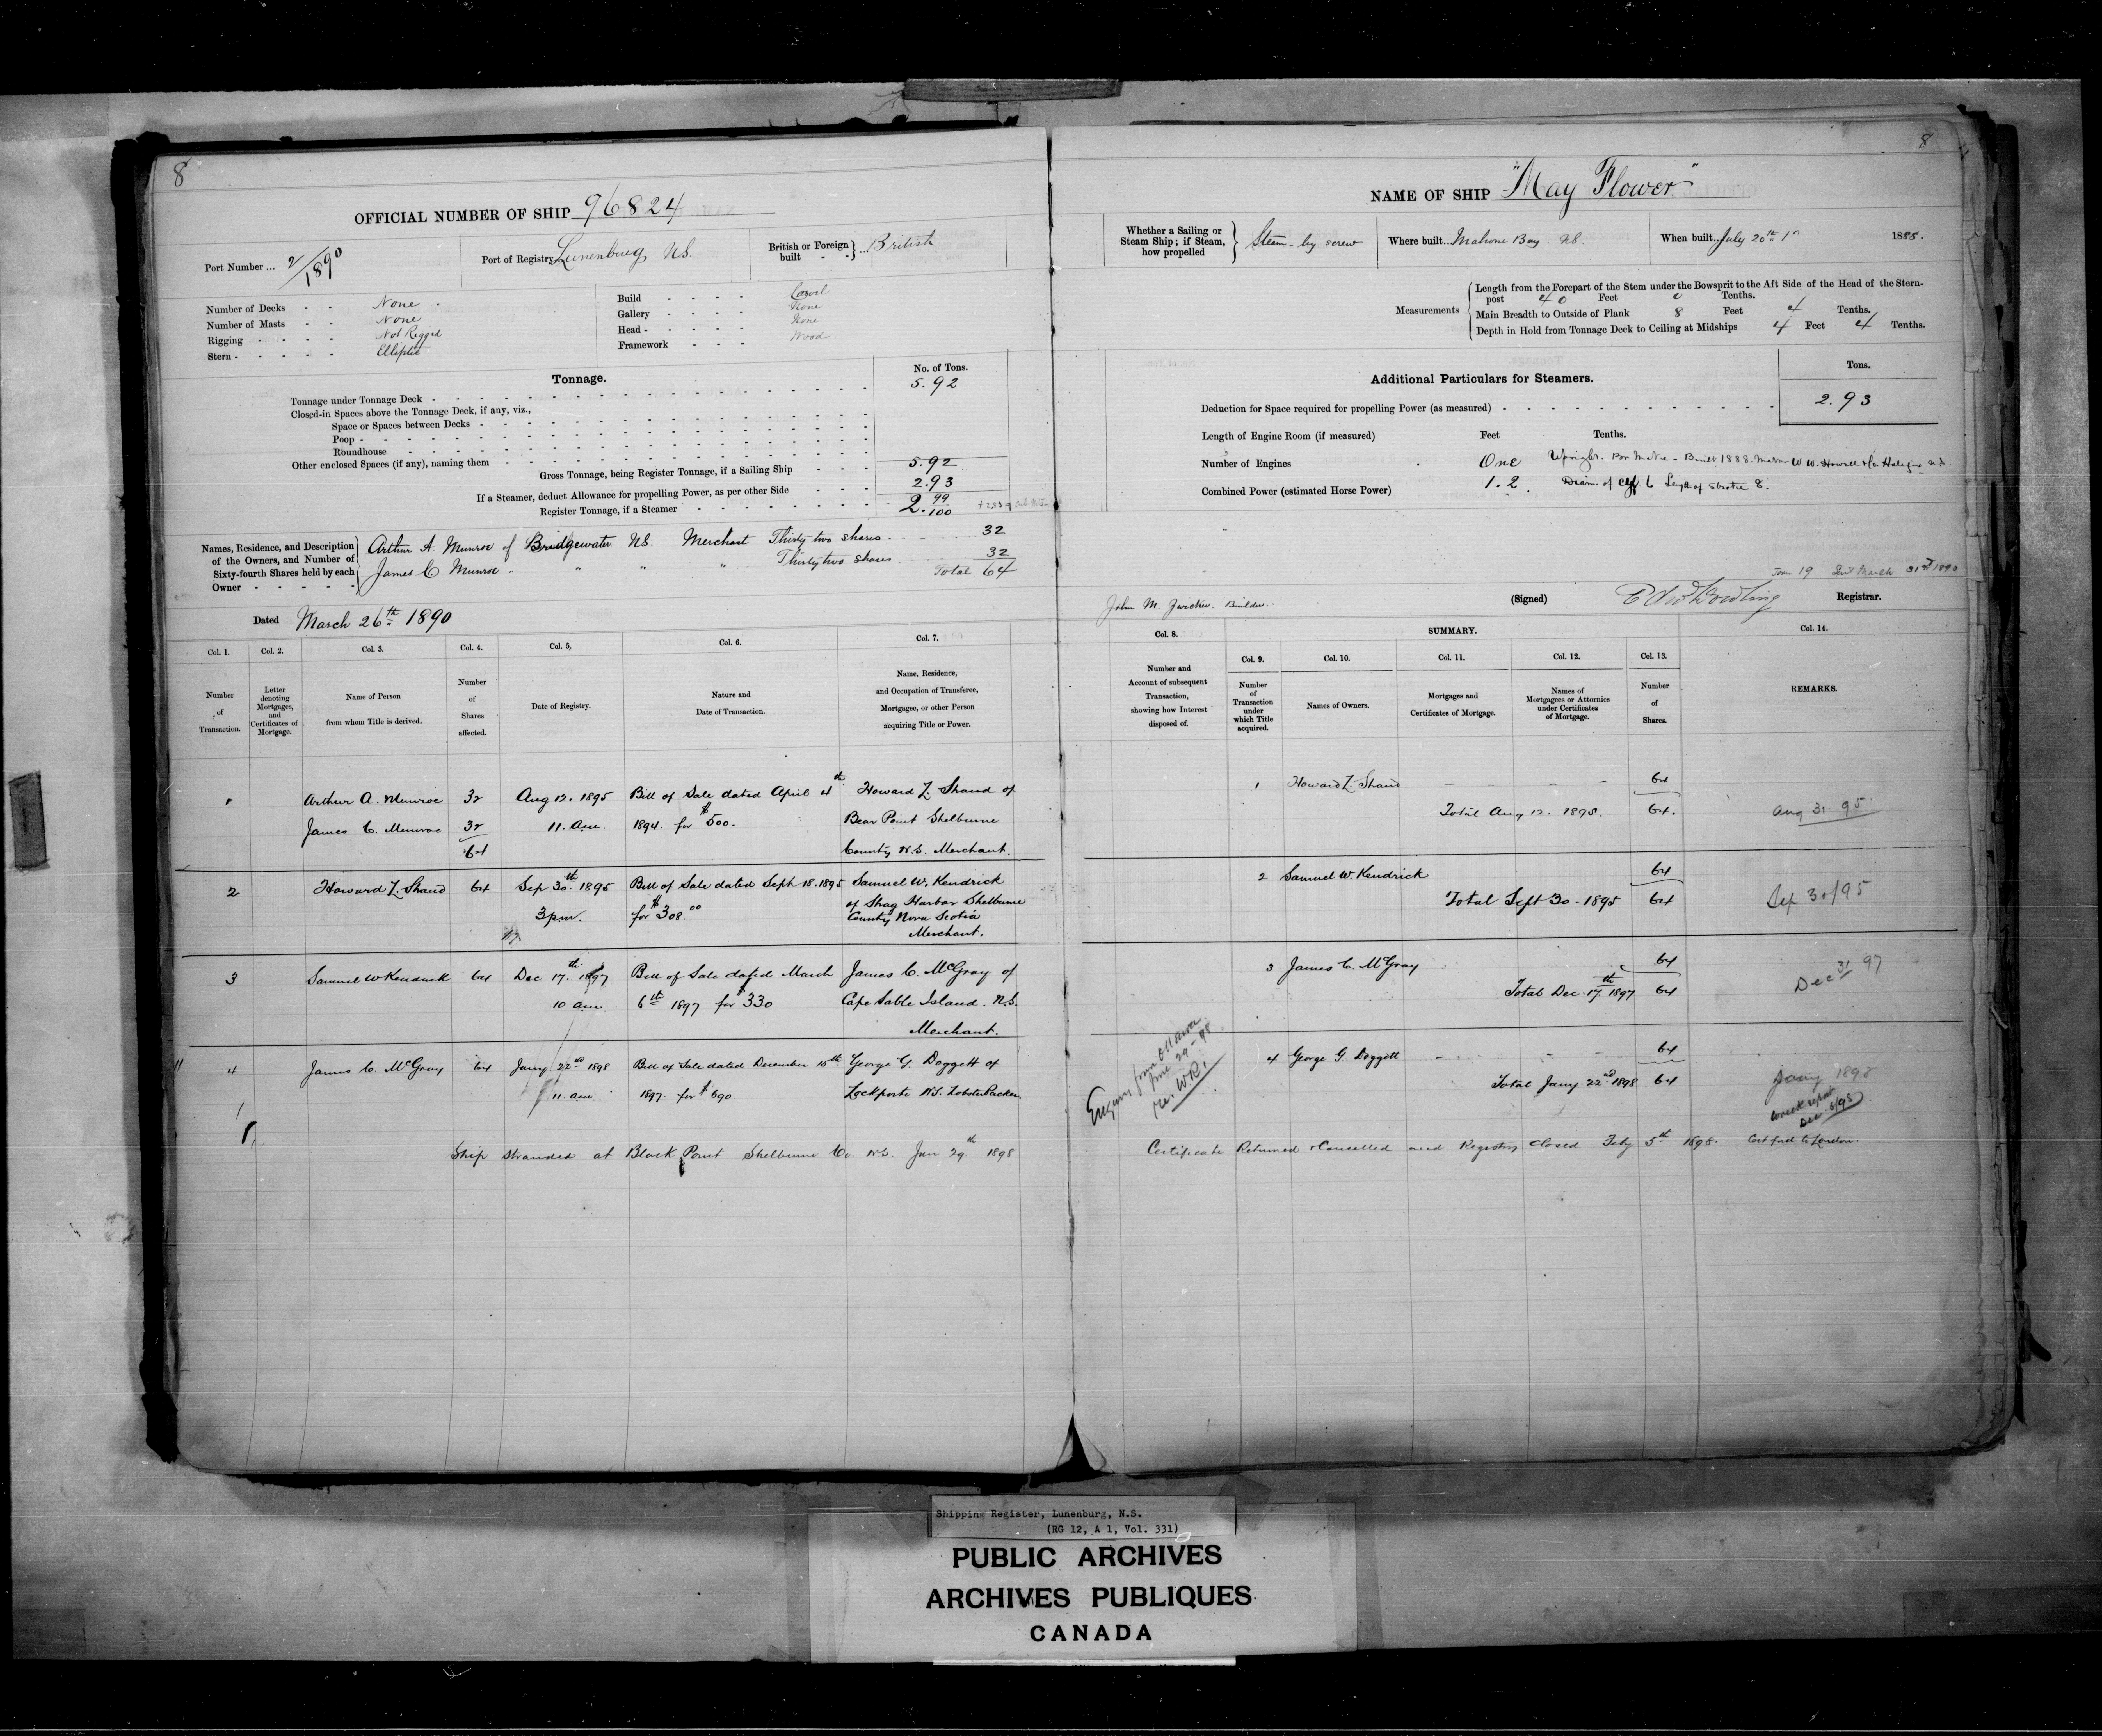 8
OFFICIAL NUMBER OF SHIP 96824
Port Number ... 2/1890
Port of Registry Lunenburg, N.S.
British or Foreign built - - } ... British
Number of Decks - - None
Number of Masts - - None
Rigging - - - - - Not Rigged
Stern - - - - - - Elliptic
Build - - - - Carvel
Gallery - - - - None
Head - - - - - None
Framework - - - Wood
Tonnage.
No. of Tons.
Tonnage under Tonnage Deck - 5.92
Closed-in Spaces above the Tonnage Deck, if any, viz.,
Space or Spaces between Decks -
Poop -
Roundhouse
Other enclosed Spaces (if any), naming them
Gross Tonnage, being Register Tonnage, if a Sailing Ship - - - 5.92
If a Steamer, deduct Allowance for propelling Power, as per other Side - - - 2.93
Register Tonnage, if a Steamer 2. 99/100
Names, Residence, and Description of the Owners, and Number of Sixty-fourth Shares held by each Owner - - - - -
Arthur A. Munroe of Bridgewater N.S. Merchant Thirty two shares 32
James C Munroe " " " " Thirty two shares 32
Total 64
Dated March 26th 1890
Col. 1. Col. 2. Col. 3. Col. 4. Col. 5. Col. 6. Col. 7.
Number of Transaction.
Letter denoting Mortgages, and Certificates of Mortgage.
Name of Person from whom Title is derived.
Number of Shares affected.
Date of Registry.
Nature and Date of Transaction.
Name, Residence, and Occupation of Transferee, Mortgagee, or other Person acquiring Title or Power.
1 Arthur A. Munroe 32 Aug 12. 1895 Bill of Sale dated April 4th Howard L. Shand of
James C. Munroe 32 11. a.m. 1894. for $500. Bear Point Shelburne
64 County N.S. Merchant.
2 Howard L. Shand 64 Sep 30th. 1895 Bill of Sale dated Sept 18. 1895 Samuel W. Kendrick
3 p.m. for $308.00 of Shag Harbor Shelburne
County Nova Scotia
Merchant.
3 Samuel W Kendrick 64 Dec 17th. 1897 Bill of Sale dated March James C. McGray of
10 a.m. 6th 1897 for $330 Cape Sable Island. N.S.
Merchant.
4 James C. McGray 64 Jany 22nd 1898 Bill of Sale dated December 15th George G. Doggett of
11. a.m. 1897. for $690. Lockporte N.S. Lobster Packer
Ship stranded at Black Point Shelburne Co. N.S. Jan 29th 1898
8
NAME OF SHIP "May Flower"
Whether a Sailing or Steam Ship; if Steam, how propelled } Steam - by screw
Where built .. Mahone Bay. N.S.
When built .. July 20th 1885.
Measurements
Length from the Forepart of the Stem under the Bowsprit to the Aft Side of the Head of the Stern-
post 40 Feet 0 Tenths.
Main Breadth to Outside of Plank 8 Feet 4 Tenths.
Depth in Hold from Tonnage Deck to Ceiling at Midships 4 Feet 4 Tenths.
Additional Particulars for Steamers.
Tons.
Deduction for Space required for propelling Power (as measured) - 2.93
Length of Engine Room (if measured) Feet Tenths.
Number of Engines One Upright. Built 1888. Maker W. W. Howell & Co. Halifax N.S.
Combined Power (estimated Horse Power) 1.2. Diam. of Cyl 6 Length of Stroke 8.
Form 19 Sent March 31st 1890
John M. Zwicker. Builder.
(Signed) Edw Dowling Registrar.
Col. 8. SUMMARY. Col. 14.
Col. 9. Col. 10. Col. 11. Col. 12. Col. 13.
Number and Account of subsequent Transaction, showing how Interest disposed of.
Number of Transaction under which Title acquired.
Names of Owners.
Mortgages and Certificates of Mortgage.
Names of Mortgagees or Attornies under Certificates of Mortgage.
Number of Shares.
REMARKS.
1 Howard L. Shand - - - - 64
Total Aug 12. 1895. 64. Aug 31. 95.
2 Samuel W. Kendrick 64
Total Sept 30 - 1895 64 Sep 30/95
3 James C. McGray 64
Total Dec. 17th 1897 64 Dec 31 97
Enquiry from Ottawa
June 29-98
re. WR1
4 George G. Doggett - - - - 64
Total Jany 22nd 1898 64 Jany 1898
Wreck report
Dec. 6/98
Certificate Returned & Cancelled and Registry Closed Feby 5th 1898. Cert fwd to London.
Shipping Register, Lunenburg, N.S.
(RG 12, A 1, Vol. 331)
PUBLIC ARCHIVES
ARCHIVES PUBLIQUES
CANADA